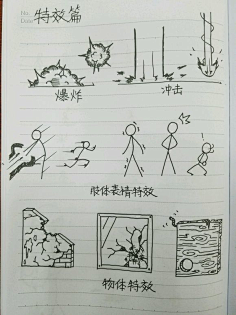 特效篇
爆炸
冲击
肢体表情特效
物体特效